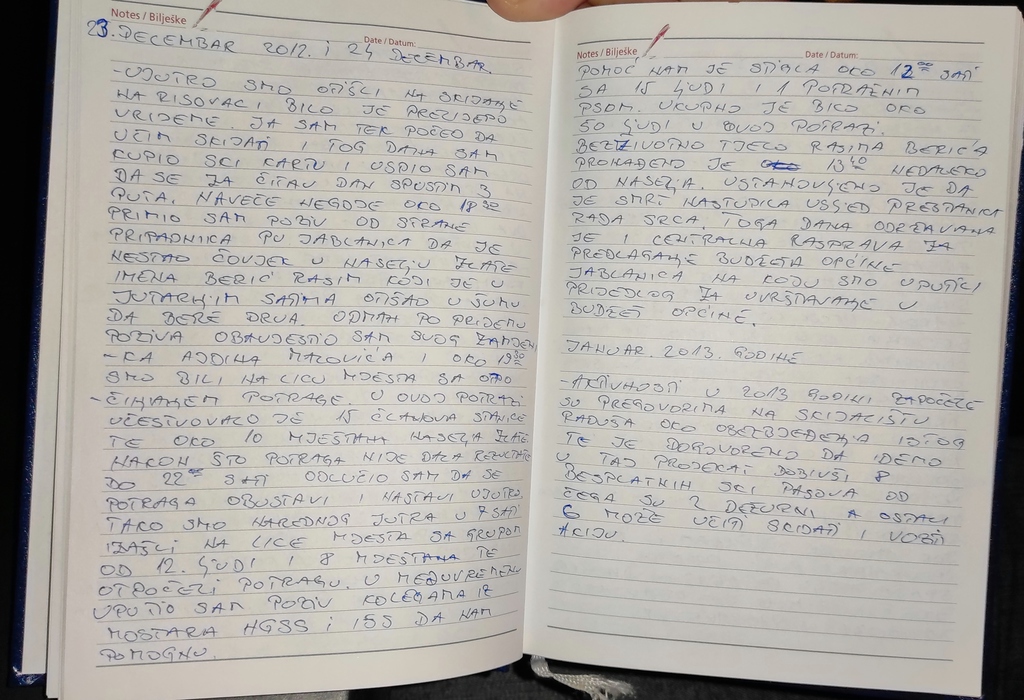 Notes / Bilješke
Date / Datum:
23. DECEMBAR 2012. i 24 DECEMBAR.
-UJUTRO SMO OTIŠLI NA SKIJANJE
NA RISOVAC I BILO JE PRELIJEPO
VRIJEME. JA SAM TEK POČEO DA
UČIM SKIJATI I TOG DANA SAM
KUPIO SKI KARTU I USPIO SAM
DA SE ZA ČITAV DAN SPUSTIM 3
PUTA. NAVEČE NEGDJE OKO 18 30
PRIMIO SAM POZIV OD STRANE
PRIPADNIKA PU JABLANICA DA JE
NESTAO ČOVJEK U NASELJU ZLATE
IMENA BERIĆ RASIM KOJI JE U
JUTARNJIM SATIMA OTIŠAO U ŠUMU
DA BERE DRVA. ODMAH PO PRIJEMU
POZIVA OBAVJESTIO SAM SVOG ZAMJENI
-KA AJDINA MALOVIĆA I OKO 19 30
SMO BILI NA LICU MJESTA SA OTPO
-ČINJANEM POTRAGE. U OVOJ POTRAZI
UČESTVOVALO JE 15 ČLANOVA STANICE
TE OKO 10 MJEŠTANA NASELJA ZLATE.
NAKON ŠTO POTRAGA NIJE DALA REZULTATE
DO 22 00 SATI ODLUČIO SAM DA SE
POTRAGA OBUSTAVI I NASTAVI UJUTRO.
TAKO SMO NAREDNOG JUTRA U 7 SATI
IZAŠLI NA LICE MJESTA SA GRUPOM
OD 12. LJUDI I 8 MJEŠTANA TE
OTPOČELI POTRAGU. U MEĐUVREMENU
UPUTIO SAM POZIV KOLEGAMA IZ
MOSTARA HGSS i ISS DA NAM
POMOGNU.
Notes / Bilješke
Date / Datum:
POMOĆ NAM JE STIGLA OKO 12 00 SATI
SA 15 LJUDI I 1 POTRAŽNIM
PSOM. UKUPNO JE BILO OKO
50 LJUDI U OVOJ POTRAZI.
BEZŽIVOTNO TJELO RASIMA BERIĆA
PRONAĐENO JE 13 40 NEDALEKO
OD NASELJA. USTANOVLJENO JE DA
JE SMRT NASTUPILA USLJED PRESTANKA
RADA SRCA. TOGA DANA ODRŽAVANA
JE I CENTRALNA RASPRAVA ZA
PREDLAGANJE BUDŽETA OPĆINE
JABLANICA NA KOJU SMO UPUTILI
PRIJEDLOG ZA UVRŠTAVANJE U
BUDŽET OPĆINE.
JANUAR. 2013. GODINE
-AKTIVNOSTI U 2013 GODINI ZAPOČELE
SU PREGOVORIMA NA SKIJALIŠTU
RADUŠA OKO OBEZBJEĐENJA ISTOG
TE JE DOGOVORENO DA IDEMO
U TAJ PROJEKAT DOBIVŠI 8
BESPLATNIH SKI PASOVA OD
ČEGA SU 2 DEŽURNI A OSTALI
6 MOŽE UČITI SKIJATI I VOZITI
AKIJU.